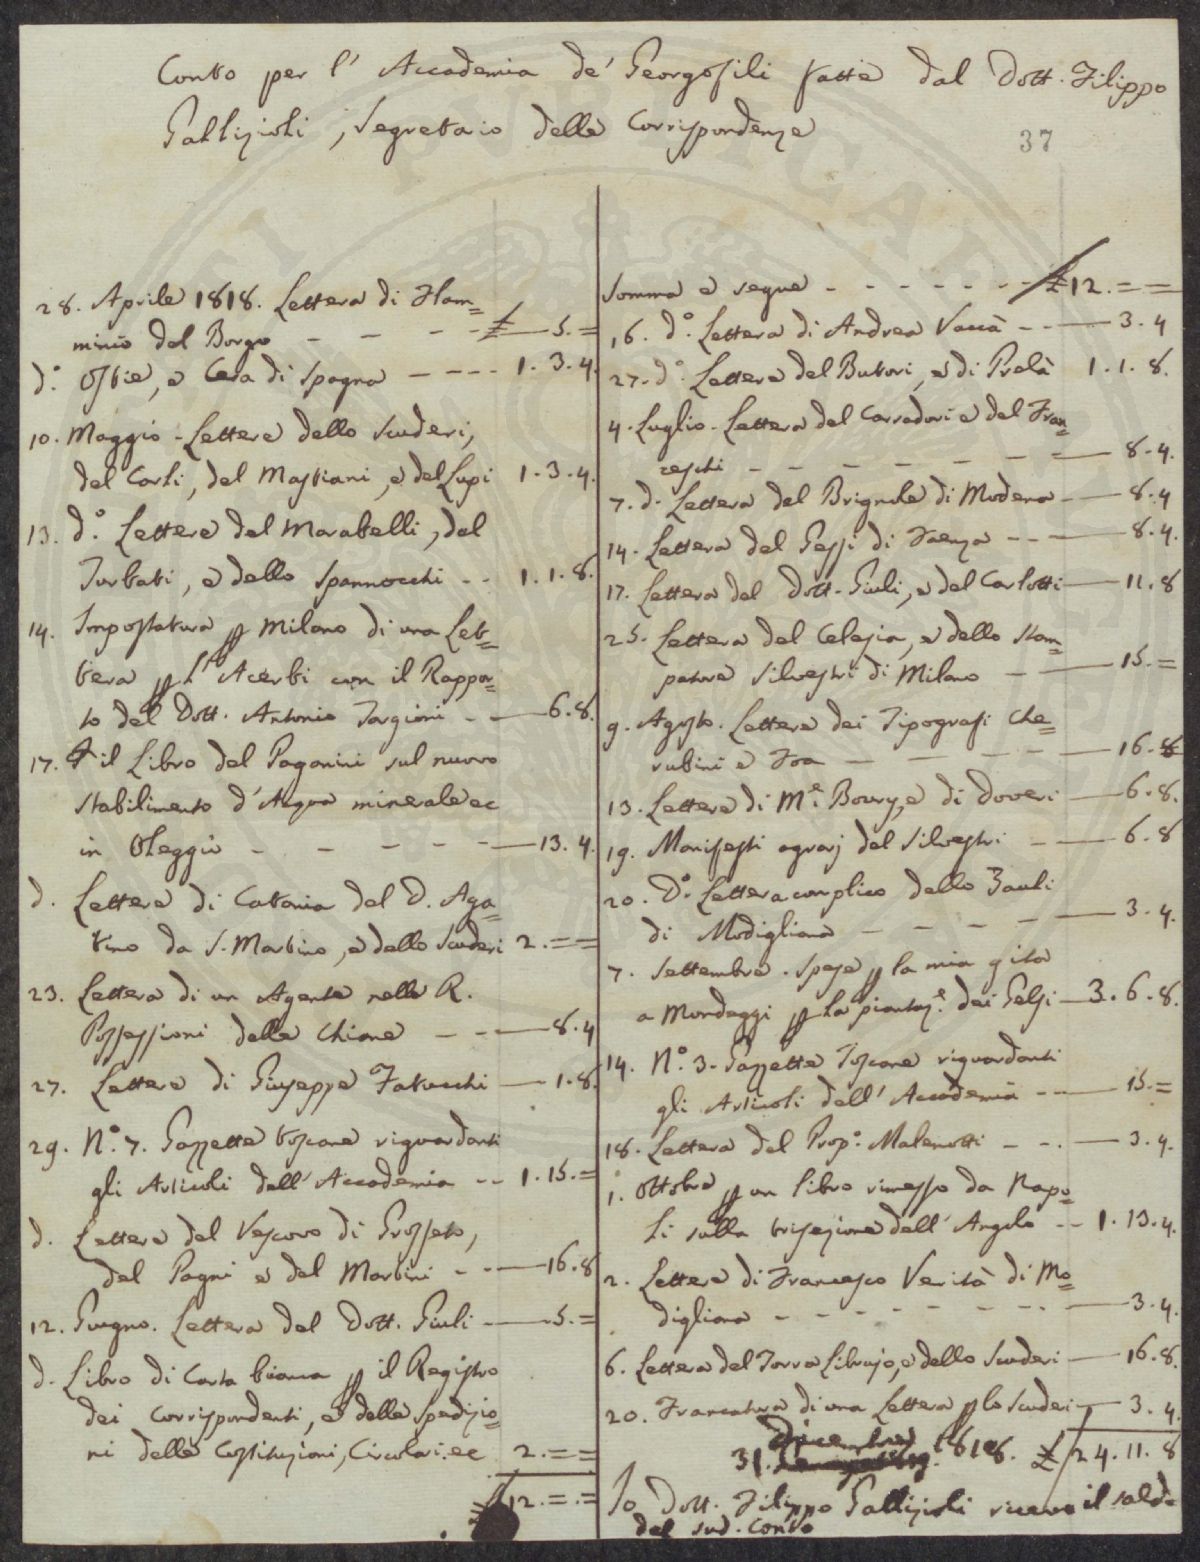 Conto per l' Accademia de' Georgofili fatte dal Dott. Filippo
Gallizioli, Segretario delle Corrispondenze
37
28. Aprile 1818. Lettera di Flam=
minio del Borgo - - - - £ — 5. =
d.° Ostie, e Cera di Spagna - - - - 1. 3. 4.
10. Maggio - Lettere dello Scuderi,
del Carli, del Mastiani, e del Lupi 1. 3. 4.
13. d.° Lettere del Marabelli, del
Turbati, e dello Spannocchi - - 1. 1. 8.
14. Impostatura p Milano di una Let=
tera p l'Acerbi con il Rappor=
to del Dott. Antonio Targioni - - — 6. 8.
17. p il Libro del Paganini sul nuovo
stabilimento d'Acqua minerale ec
in Oleggio - - - - - — 13. 4.
d. Lettere di Catania del D. Aga=
tino da S. Martino, e dello Scuderi 2. = =
23. Lettera di un Agente nelle R.
Possessioni delle Chiane - - — 8. 4
27. Lettere di Giuseppe Fatucchi — 1. 8.
29. N.° 7. Gazzette toscane riguardanti
gli Articoli dell' Accademia - - 1. 15. =
d. Lettere del Vescovo di Grosseto,
del Pagni e del Martini - - — 16. 8
12. Giugno. Lettera del Dott. Giuli — 5. =
d. Libro di Carta bianca p il Registro
dei Corrispondenti, e delle Spedizio=
ni delle Costituzioni, Circolari ec 2. = =
£ 12. =. =
Somma e segue - - - - - - £ 12. = =
16. d.° Lettera di Andrea Vaccà - - — 3. 4
27. d.° Lettere del Butori, e di Prelà 1. 1. 8.
4. Luglio. Lettera del Corradori e del Fran=
ceschi - - - - - - — 8. 4.
7. d. Lettera del Brignole di Modena — 8. 4
14. Lettera del Gessi di Faenza - - — 8. 4.
17. Lettera del Dott. Giuli, e del Carlotti — 11. 8
25. Lettera del Celesia, e dello Stam=
patore Silvestri di Milano - - — 15. =
9. Agosto. Lettere dei Tipografi Che=
rubini e Fra - - - - — 16. 8
13. Lettere di M.e Boury, e di Doveri — 6. 8.
19. Manifesti agrarj del Silvestri - — 6. 8
20. D.° Lettera con plico dello Zauli
di Modigliana - - - - — 3. 4.
7. Settembre. Spese p la mia gita
a Mondeggi p la piantaz.e dei Gelsi — 3. 6. 8.
14. N.° 3. Gazzette Toscane riguardanti
gli Articoli dell' Accademia - - — 15. =
18. Lettera del Prop.° Malenotti - - — 3. 4.
1. Ottobre p un libro rimesso da Napo=
li sulla trisezione dell' Angolo - - 1. 13. 4.
2. Lettera di Francesco Verità di Mo=
digliana - - - - - - — 3. 4.
6. Lettera del Torra Librajo, e dello Scuderi — 16. 8.
20. Francatura di una Lettera p lo Scuderi — 3. 4.
31. Dicembre 1818. £ 24. 11. 8
Io Dott. Filippo Gallizioli ricevo il saldo
del sud. Conto